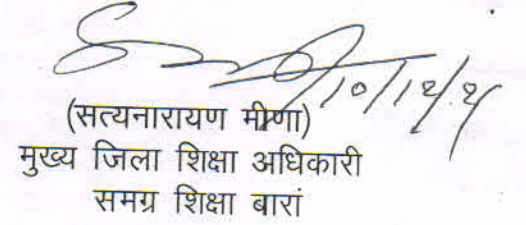 10/12/21
(सत्यनारायण मीणा)
मुख्य जिला शिक्षा अधिकारी
समग्र शिक्षा बारां